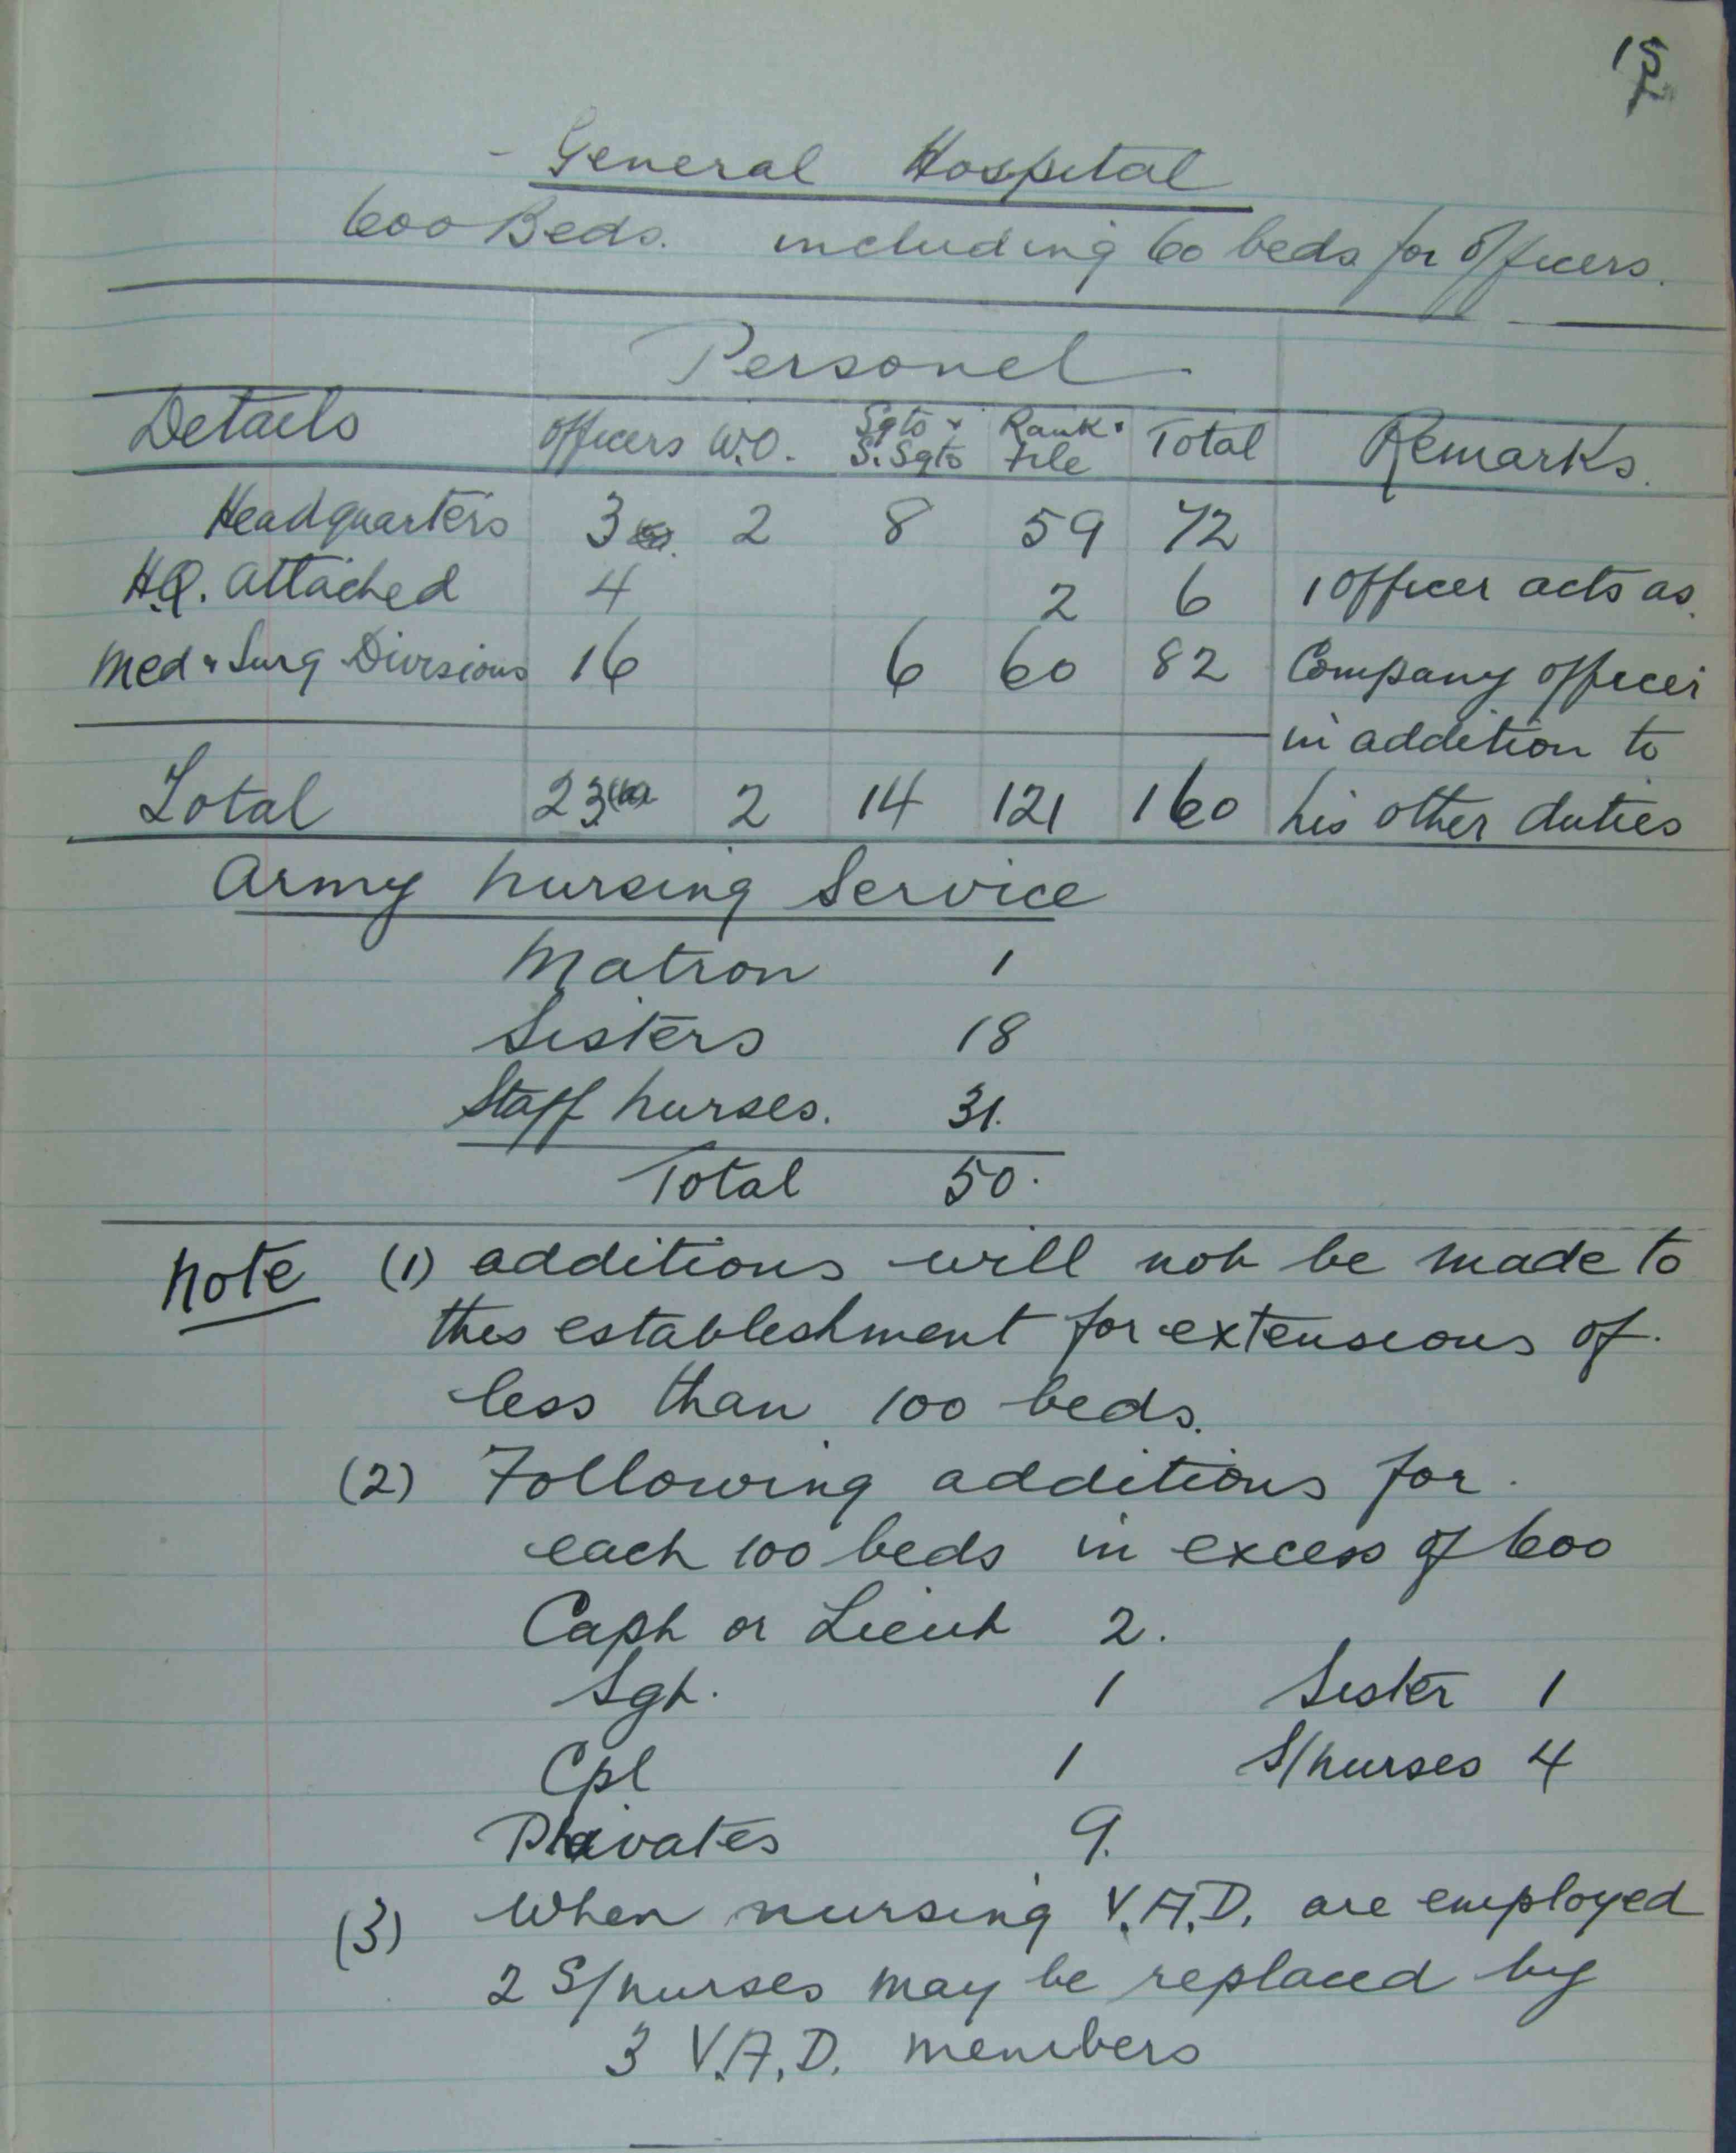 15
General Hospital
600 Beds. including 60 beds for Officers.
Personel
Details Officers W.O. Sgts & S. Sgts Rank & File Total Remarks.
Headquarters 3 (a) 2 8 59 72
H.Q. attached 4 2 6 1 Officer acts as
Med & Surg Divisions 16 6 60 82 Company officer
in addition to
Total 23 (a) 2 14 121 160 his other duties
Army Nursing Service
Matron 1
Sisters 18
Staff Nurses. 31.
Total 50.
Note (1) additions will not be made to
this establishment for extensions of
less than 100 beds.
(2) Following additions for
each 100 beds in excess of 600
Capt or Lieut 2.
Sgt. 1 Sister 1
Cpl 1 S/nurses 4
Privates 9.
(3) When nursing V.A.D. are employed
2 S/nurses may be replaced by
3 V.A.D. members